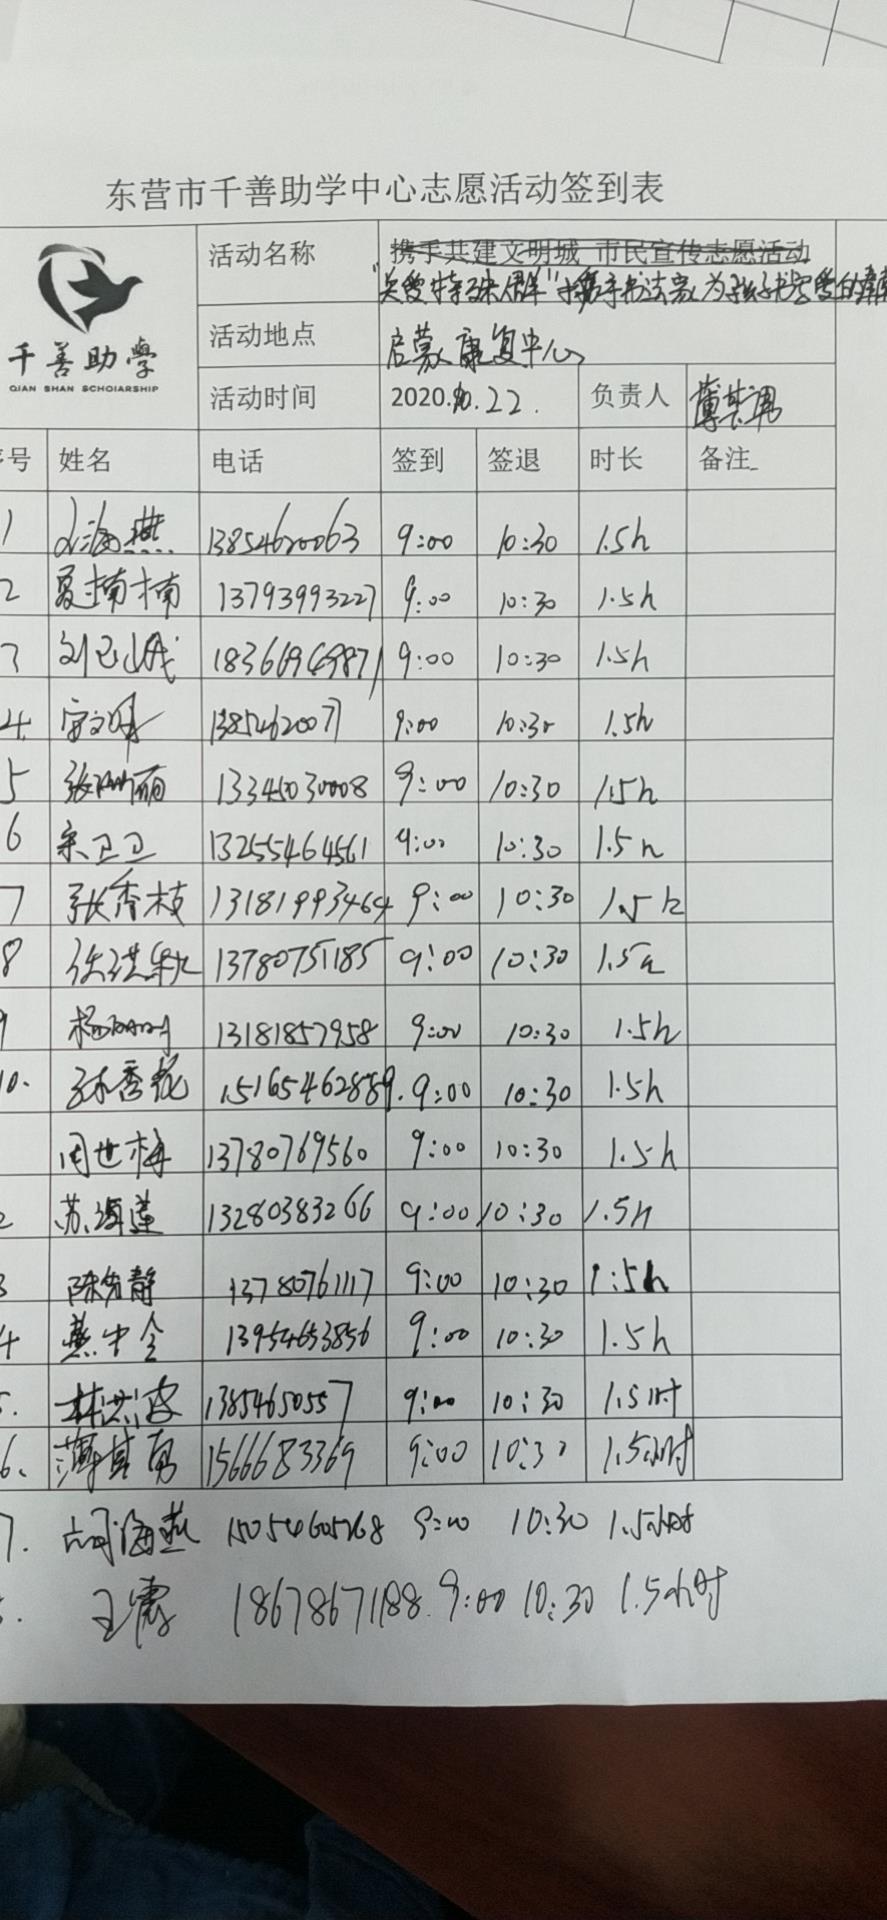 东营市千善助学中心志愿活动签到表
千善助学
QIAN SHAN SCHOIARSHIP
活动名称 携手共建文明城 市民宣传志愿活动
"关爱特殊群"携手书法家为孩子书写爱的
活动地点 启蒙康复中心
活动时间 2020.10.22. 负责人 薄其勇
号 姓名 电话 签到 签退 时长 备注
1 海燕 13854620063 9:00 10:30 1.5h
2 夏楠楠 13793993227 9:00 10:30 1.5h
3 刘 9:00 10:30 1.5h
4. 1385462007 9:00 10:30 1.5h
5 张丽 13345030008 9:00 10:30 1.5h
6 宋卫卫 13255464561 9:00 10:30 1.5h
7 张香枝 13181993464 9:00 10:30 1.5h
8 13780751185 9:00 10:30 1.5h
9 杨 13181857958 9:00 10:30 1.5h
10. 孙秀花 15165462889. 9:00 10:30 1.5h
周世梅 13780769560 9:00 10:30 1.5h
2 苏海莲 13280383266 9:00 10:30 1.5h
3 陈先静 13780761117 9:00 10:30 1:5h
4 燕中全 13954653856 9:00 10:30 1.5h
5. 林 13854650557 9:00 10:30 1.5时
6. 薄其勇 1566683369 9:00 10:30 1.5小时
7. 海燕 15054605268 9:00 10:30 1.5小时
王霞 18678671188. 9:00 10:30 1.5小时